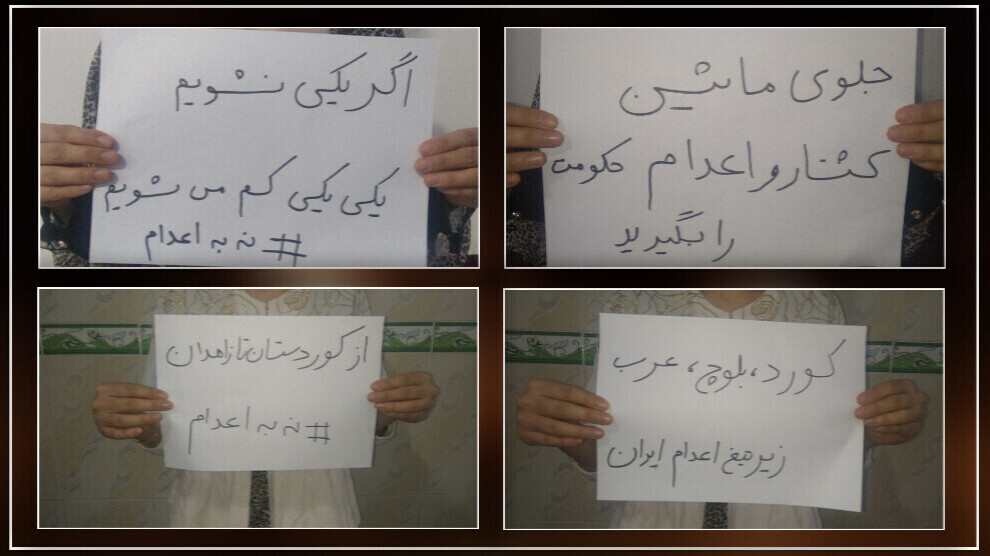 جلوی ماشین
کشتار و اعدام حکومت
را بگیرید
اگر یکی نشویم
یکی یکی کم می شویم
#نه به اعدام
کورد، بلوچ، عرب
زیر تیغ اعدام ایران
از کوردستان تا زاهدان
#نه به اعدام